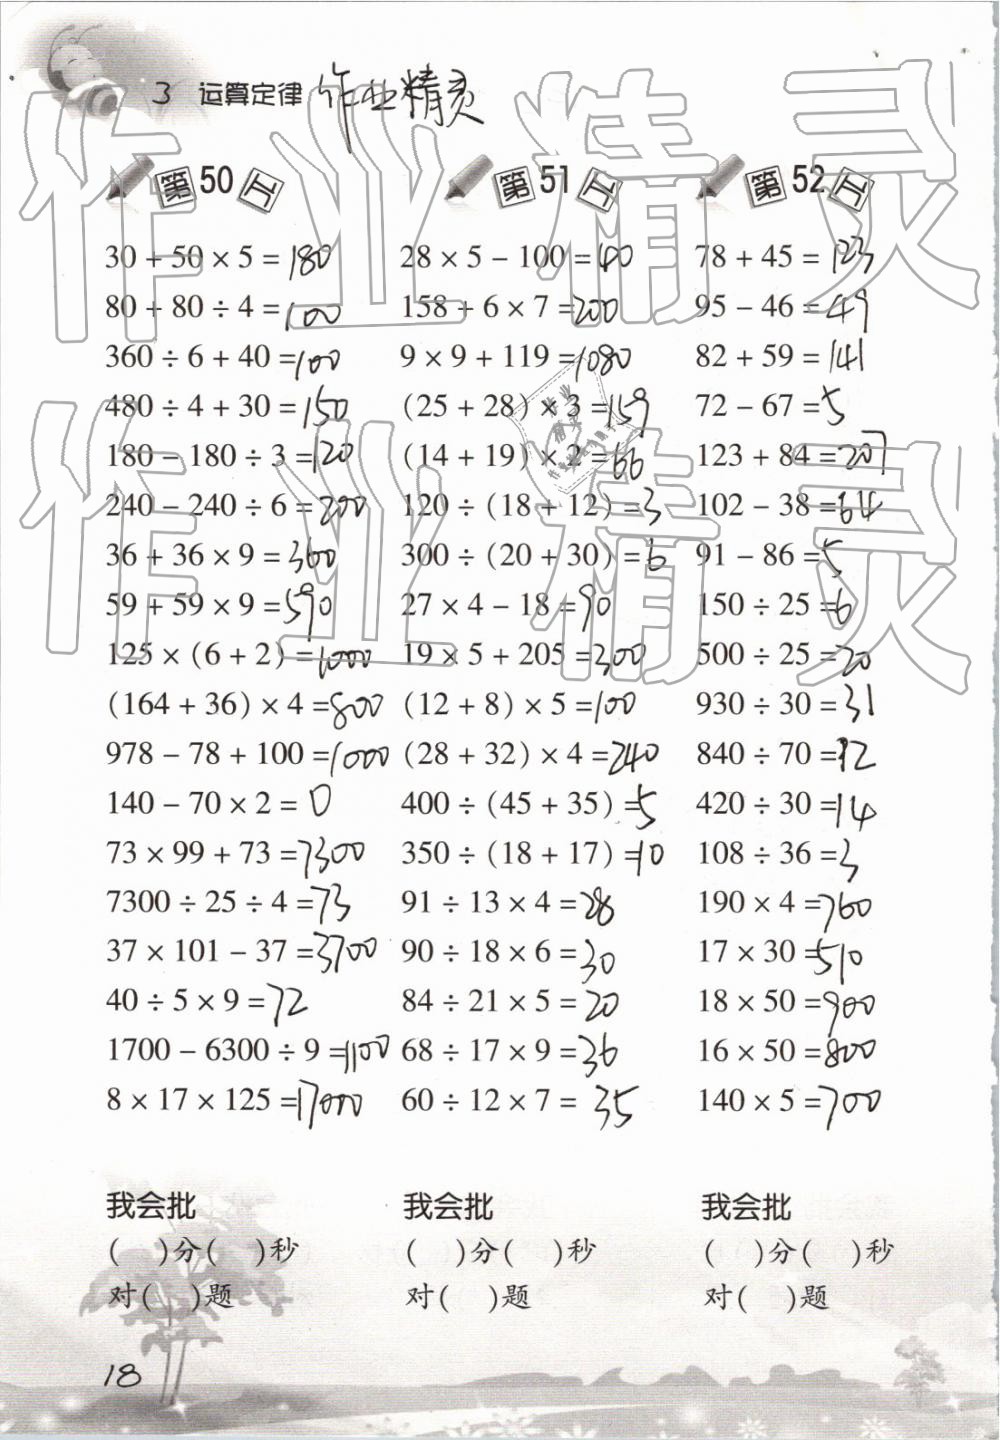 3 运算定律 作业精灵
第50工
30 + 50 × 5 = 180
80 + 80 ÷ 4 = 100
360 ÷ 6 + 40 = 100
480 ÷ 4 + 30 = 150
180 − 180 ÷ 3 = 120
240 − 240 ÷ 6 = 200
36 + 36 × 9 = 360
59 + 59 × 9 = 590
125 × (6 + 2) = 1000
(164 + 36) × 4 = 800
978 − 78 + 100 = 1000
140 − 70 × 2 = 0
73 × 99 + 73 = 7300
7300 ÷ 25 ÷ 4 = 73
37 × 101 − 37 = 3700
40 ÷ 5 × 9 = 72
1700 − 6300 ÷ 9 = 1100
8 × 17 × 125 = 17000
我会批
( )分( )秒
对( )题
第51工
28 × 5 − 100 = 40
158 + 6 × 7 = 200
9 × 9 + 119 = 1080
(25 + 28) × 3 = 159
(14 + 19) × 2 = 66
120 ÷ (18 + 12) = 3
300 ÷ (20 + 30) = 6
27 × 4 − 18 = 90
19 × 5 + 205 = 300
(12 + 8) × 5 = 100
(28 + 32) × 4 = 240
400 ÷ (45 + 35) = 5
350 ÷ (18 + 17) = 10
91 ÷ 13 × 4 = 28
90 ÷ 18 × 6 = 30
84 ÷ 21 × 5 = 20
68 ÷ 17 × 9 = 36
60 ÷ 12 × 7 = 35
我会批
( )分( )秒
对( )题
第52工
78 + 45 = 123
95 − 46 = 49
82 + 59 = 141
72 − 67 = 5
123 + 84 = 207
102 − 38 = 64
91 − 86 = 5
150 ÷ 25 = 6
500 ÷ 25 = 20
930 ÷ 30 = 31
840 ÷ 70 = 12
420 ÷ 30 = 14
108 ÷ 36 = 3
190 × 4 = 760
17 × 30 = 510
18 × 50 = 900
16 × 50 = 800
140 × 5 = 700
我会批
( )分( )秒
对( )题
18
作业精灵
作业精灵